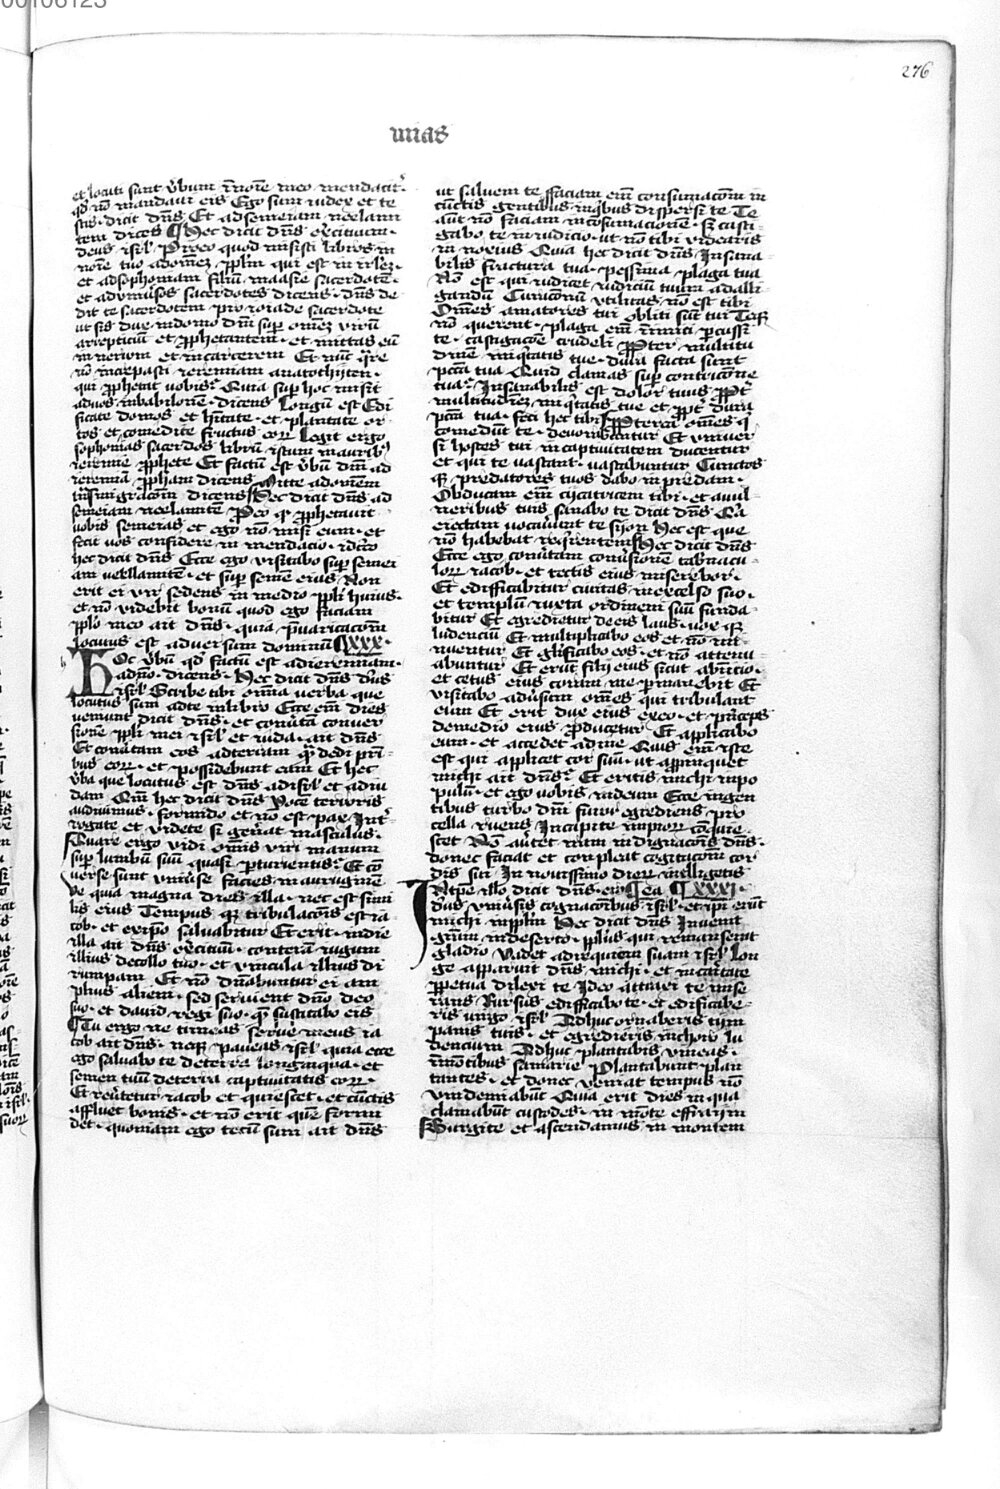 00106123
276
mias
et locuti sunt v̄bum ī noīe meo mendacit᷑ ·
qd̓ nō mandaui eis Ego sum iudex et te
stis · dicit dn̄s Et ad semeiam neelami
tem dices ¶ Hec dicit dn̄s ex̓cituum ·
deus isrl̓ Pro eo quod misisti libros in
noīe tuo ad om̄ez ppl̓m qui est in irl̓ez ·
et ad sophoniam filiū maasie sacerdotē ·
et ad vniu̓sos sacerdotes dicens · dn̄s de
dit te sacerdotem pro ioiade sacerdote
ut sis dux in domo dn̄i sup̱ om̄ez virū
arrepticiū et ꝓphetantem · et mittas eū
in neruom et in carcerem Et nūc q̓re
nō increpasti ieremiam anatothitem ·
qui ꝓphetat uobis · Quia sup̱ hoc misit
ad uos in babilonē · dicens Longū est Edi
ficate domos et hītate · et plantate or
tos et comedite fructus eoꝝ Legit ergo
sophonias sacerdos librū istum in aurib
ieremie ꝓphete Et factū est v̄bū dn̄i ad
ieremiā ꝓpham dicens Mitte ad om̄em
trāsmigracōm dicens Hec dicit dn̄s ad
semeiam neelamitē Pro eo qꝫ ꝓphetauit
uobis semeias et ego nō misi eum · et
fecit uos confidere in mendacio · idcīco
hec dicit dn̄s Ecce ego visitabo sup̱ semei
am neellamitē · et sup̱ semē eius Non
erit ei vir sedens in medio ppl̓i huius ·
et nō videbit bonū quod ego faciam
ppl̓o meo ait dn̄s · quia p̓uaricacōm
locutus est aduersum dominū XXX ·
Hoc v̄bū qd̓ factū est ad ieremiam ·
a dn̄o · dicens · Hec dicit dn̄s d̓us
isrl̓ Scribe tibi om̄ia verba que
locutus sum ad te in libro Ecce em̄ dies
veniunt dicit dn̄s · et conu̓tā conuer
sionē ppl̓i mei isrl̓ et iuda · ait dn̄s
Et conu̓tam eos ad terram q̄ꝫ dedi pr̄i
bus eoꝝ · et possidebunt eam Et hec
v̓ba que locutus est dn̄s ad isrl̓ et ad iu
dam Qm̄ hec dicit dn̄s Vocē terroris
audiuimus · formido et nō est pax Int̓
rogate et videte si gen̓at masculus ·
Quare ergo vidi om̄is viri manum
sup̱ lumbū suū quasi ꝑturientis · Et cō
u̓se sunt vniu̓se facies in auruginē
Ve quia magna dies illa · nec est simi
lis eius Tempus qꝫ tribulacōis est ia
cob · et ex ip̄o saluabitur Et erit · in die
illa ait dn̄s ex̓cituū · conterā iugum
illius de collo tuo · et vincula illius di
rumpam Et nō dn̄abuntur ei am
plius alieni · sed seruient dn̄o deo
suo · et dauid regi suo · q̄ꝫ suscitabo eis
¶ Tu ergo ne timeas serue meus ia
cob ait dn̄s · neqꝫ paueas isrl̓ quia ecce
ego saluabo te de terra longinqua · et
semen tuū de terra captiuitatis eoꝝ ·
Et reu̓tetur iacob et quiescet · et cūctis
affluet bonis · et nō erit quē formi
det · quoniam ego tecū sum ait dn̄s
ut saluem te faciam em̄ consumacōm in
cūctis gentibus in q̓bus disp̱si te Te
aut̄ nō faciam in cōsumacionē · Sꝫ casti ·
gabo te in iudicio · ut nō tibi videaris
in noxius Quia hec dicit dn̄s Insana ·
bilis fractura tua · pessima plaga tua
Nō est qui iudicet iudiciū tuum ad alli ·
gandū Curacionū vtilitas nō est tibi
Om̄es amatores tui obliti sūt tui Teqꝫ
nō querent · plaga em̄ inimici ꝑcussi
te · castigacōe crudeli Propter multitu
dinē iniq̓tatis tue · dura facta sunt
pccā tua Quid clamas sup̱ contricōne
tua · Insanabilis est dolor tuus Propt̓
multitudinez iniq̓tatis tue et ꝓpt̓ dura
pccā tua · feci hec tibi Propterea om̄es q̓
comedūt te · deuorabuntur Et vniuer
si hostes tui in captiuitatem ducentur
et qui te vastant · vastabuntur Cunctos
qꝫ predatores tuos dabo in predam ·
Obducam em̄ cicatricem tibi · et a vul ·
neribus tuis sanabo te dicit dn̄s Qr̄
eiectam vocaue̓unt te sijon Hec est que
nō habebat req̓rentem Hec dicit dn̄s
Ecce ego conu̓tam conu̓sionem tab̓nacu ·
loꝝ iacob · et tectis eius miserebor ·
Et edifficabitur ciuitas in excelso suo ·
et templū iuxta ordinem suū funda ·
bitur Et egredietur de eis laus · vox qꝫ
ludenciū Et multiplicabo eos et nō mi ·
nuentur Et gl̓ificabo eos · et nō attenu
abuntur Et erūt filij eius sicut ab inicio ·
et cetus eius coram me ꝑmanebit Et
visitabo adu̓sum om̄es qui tribulant
eum Et erit dux eius ex eo · et p̓nceps
de medio eius ꝓducetur Et applicabo
eum · et accedet ad me Quis em̄ iste
est qui applicet cor suū · ut appinquet
michi ait dn̄s · Et eritis michi in po
pulū · et ego uobis in deum Ecce ingen
tibus turbo dn̄i furor egrediens pro
cella ruens In capite impioꝝ cōquie ·
scet Nō au̓tet iram indignacōis dn̄s ·
donec faciat et compleat cogitacōm cor
dis sui In nouissimo dieꝝ intelligetis
In tp̄e illo dicit dn̄s · ero ea ¶ XXXI ·
d̓us vniu̓sis cognacōibus isrl̓ · et ip̄i erūt
michi in ppl̓m Hec dicit dn̄s Inuenit
grām in deserto · ppl̓us qui remanserit
gladio Vadet ad requiem suam isrl̓ Lon
ge apparuit dn̄s michi · et in caritate
ꝑpetua dilexi te Ideo attraxi te mise
rans Rursus edifficabo te · et edificabe ·
ris uirgo isrl̓ Adhuc ornaberis tym
panis tuis · et egredieris in choro lu
dencium Adhuc plantabis vineas ·
in mōtibus samarie Plantabunt plan
tantes · et donec veniat tempus nō
vindemiabūt Quia erit dies in qua
clamabūt custodes · in mōte effraym
Surgite et ascendamus in montem